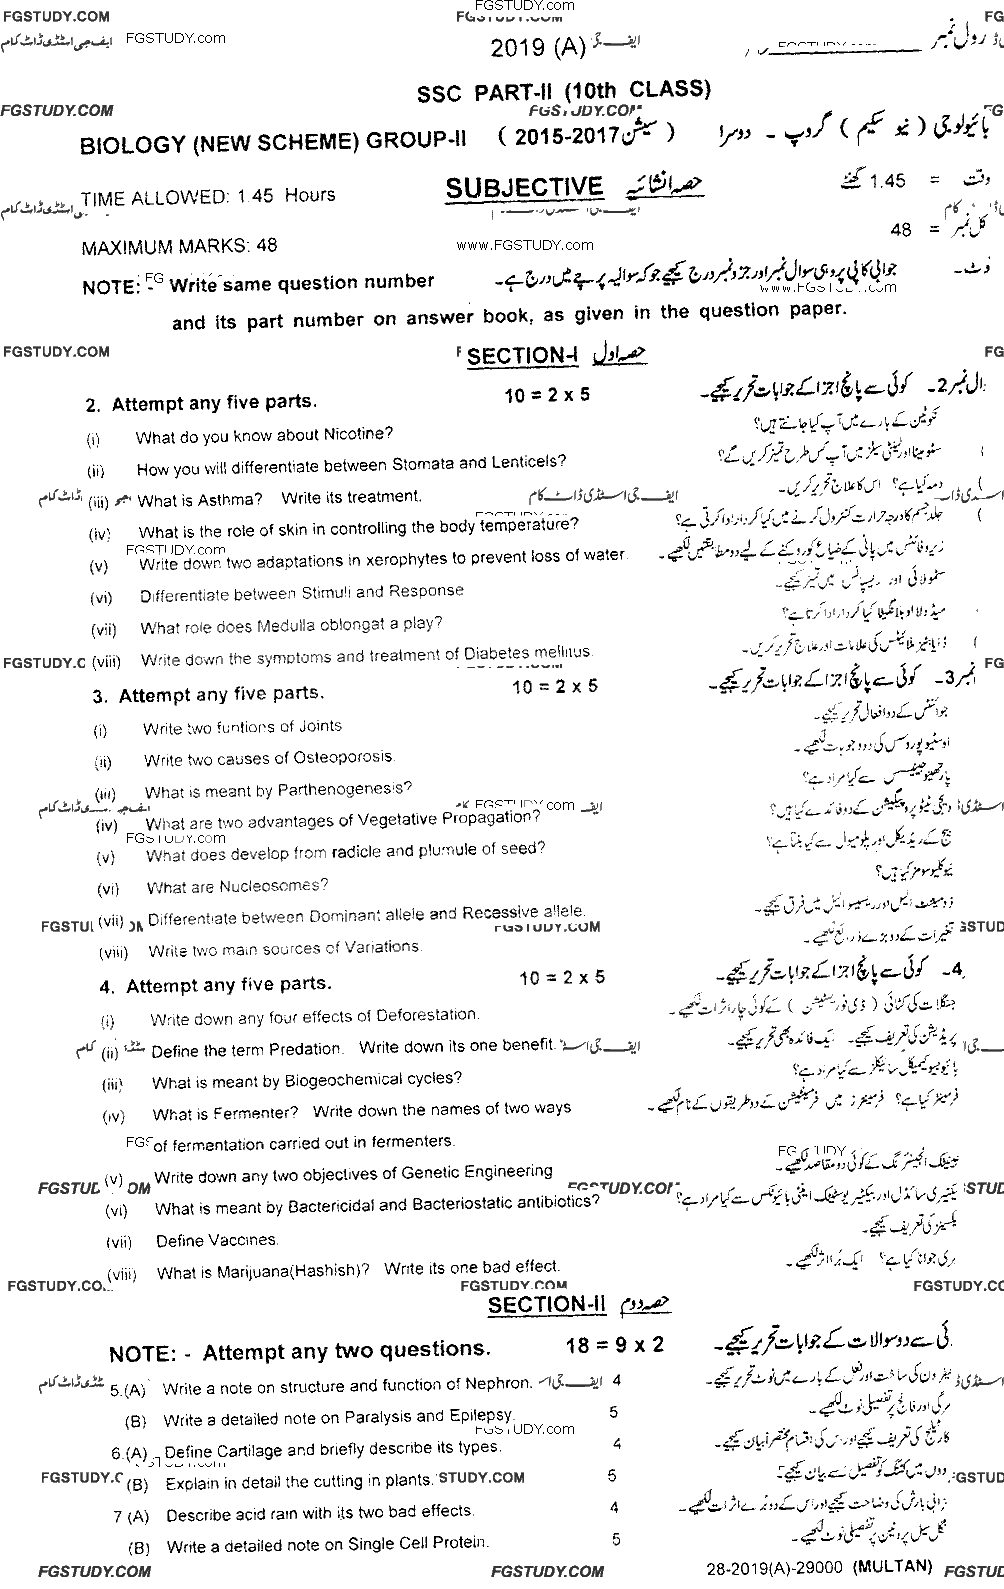 FGSTUDY.com
FGSTUDY.COM FGSTUDY.COM FG
ایف جی اسٹڈی ڈاٹ کام FGSTUDY.com 2019 (A) رول نمبر
SSC PART-II (10th CLASS)
FGSTUDY.COM FGSTUDY.COM FG
BIOLOGY (NEW SCHEME) GROUP-II ( 2015-2017 سیشن ) بائیولوجی ( نیو سکیم ) گروپ ۔ دوسرا
TIME ALLOWED: 1.45 Hours SUBJECTIVE حصہ انشائیہ وقت = 1.45 گھنٹے
MAXIMUM MARKS: 48 www.FGSTUDY.com کل نمبر = 48
NOTE: - Write same question number جوابی کاپی پر وہی سوال نمبر اور جزو نمبر درج کیجیے جو کہ سوالیہ پرچے میں درج ہے۔
www.FGSTUDY.com
and its part number on answer book, as given in the question paper.
FGSTUDY.COM SECTION-I حصہ اول FG
2. Attempt any five parts. 10 = 2 x 5 نمبر 2۔ کوئی سے پانچ اجزا کے جوابات تحریر کیجیے۔
(i) What do you know about Nicotine? نکوٹین کے بارے میں آپ کیا جانتے ہیں؟
(ii) How you will differentiate between Stomata and Lenticels? سٹومیٹا اور لینٹی سیلز میں آپ کس طرح تمیز کریں گے؟
(iii) What is Asthma? Write its treatment. ایف جی اسٹڈی ڈاٹ کام دمہ کیا ہے؟ اس کا علاج تحریر کریں۔
(iv) What is the role of skin in controlling the body temperature? جلد جسم کا درجہ حرارت کنٹرول کرنے میں کیا کردار ادا کرتی ہے؟
FGSTUDY.com
(v) Write down two adaptations in xerophytes to prevent loss of water. زیروفائٹس میں پانی کے ضیاع کو روکنے کے لیے دو مطابقتیں لکھیے۔
(vi) Differentiate between Stimuli and Response سٹمولائی اور ریسپانس میں تمیز کیجیے۔
(vii) What role does Medulla oblongat a play? میڈولا اوبلانگیٹا کیا کردار ادا کرتا ہے؟
FGSTUDY.C (viii) Write down the symptoms and treatment of Diabetes mellitus. ذیابیطیز ملائیٹس کی علامات اور علاج تحریر کریں۔
3. Attempt any five parts. 10 = 2 x 5 نمبر 3۔ کوئی سے پانچ اجزا کے جوابات تحریر کیجیے۔
(i) Write two funtions of Joints جوائنٹس کے دو افعال تحریر کیجیے۔
(ii) Write two causes of Osteoporosis. اوسٹیوپوروسس کی دو وجوہات لکھیے۔
(iii) What is meant by Parthenogenesis? پارتھینوجینیسس سے کیا مراد ہے؟
FGSTUDY.com
(iv) What are two advantages of Vegetative Propagation? ویجی ٹیٹو پروپیگیشن کے دو فائدے کیا ہیں؟
FGSTUDY.com
(v) What does develop from radicle and plumule of seed? بیج کے ریڈیکل اور پلومیول سے کیا بنتا ہے؟
(vi) What are Nucleosomes? نیوکلیوسومز کیا ہیں؟
(vii) Differentiate between Dominant allele and Recessive allele. ڈومیننٹ الیل اور ریسیسو الیل میں فرق کیجیے۔
FGSTUDY.COM
(viii) Write two main sources of Variations. تغیرات کے دو بڑے ذرائع لکھیے۔
4. Attempt any five parts. 10 = 2 x 5 4۔ کوئی سے پانچ اجزا کے جوابات تحریر کیجیے۔
(i) Write down any four effects of Deforestation. جنگلات کی کٹائی ( ڈی فوریسٹیشن ) کے کوئی چار اثرات لکھیے۔
(ii) Define the term Predation. Write down its one benefit. پریڈیشن کی تعریف کیجیے۔ ایک فائدہ بھی تحریر کیجیے۔
(iii) What is meant by Biogeochemical cycles? بائیوجیوکیمیکل سائیکلز سے کیا مراد ہے؟
(iv) What is Fermenter? Write down the names of two ways فرمینٹر کیا ہے؟ فرمینٹرز میں فرمینٹیشن کے دو طریقوں کے نام لکھیے۔
of fermentation carried out in fermenters.
(v) Write down any two objectives of Genetic Engineering جینیٹک انجینئرنگ کے کوئی دو مقاصد لکھیے۔
FGSTUDY.COM
(vi) What is meant by Bactericidal and Bacteriostatic antibiotics? بیکٹیری سائڈل اور بیکٹیریوسٹیٹک اینٹی بائیوٹکس سے کیا مراد ہے؟
(vii) Define Vaccines. ویکسینز کی تعریف کیجیے۔
(viii) What is Marijuana(Hashish)? Write its one bad effect. میری جوانا کیا ہے؟ ایک برا اثر لکھیے۔
FGSTUDY.CO FGSTUDY.COM FGSTUDY.CC
SECTION-II حصہ دوم
NOTE: - Attempt any two questions. 18 = 9 x 2 ئی سے دو سوالات کے جوابات تحریر کیجیے۔
5.(A) Write a note on structure and function of Nephron. 4 نیفرون کی ساخت اور فعل کے بارے میں نوٹ تحریر کیجیے۔
(B) Write a detailed note on Paralysis and Epilepsy. 5 مرگی اور فالج پر تفصیلی نوٹ لکھیے۔
FGSTUDY.com
6.(A) Define Cartilage and briefly describe its types. 4 کارٹلیج کی تعریف کیجیے اور اس کی اقسام مختصراً بیان کیجیے۔
FGSTUDY.C (B) Explain in detail the cutting in plants. STUDY.COM 5 ودوں میں کٹنگ کو تفصیل سے بیان کیجیے۔ FGSTUD
7 (A) Describe acid rain with its two bad effects. 4 تیزابی بارش کی وضاحت کیجیے اور اس کے دو برے اثرات لکھیے۔
(B) Write a detailed note on Single Cell Protein. 5 سنگل سیل پروٹین پر تفصیلی نوٹ لکھیے۔
FGSTUDY.COM FGSTUDY.COM 28-2019(A)-29000 (MULTAN) FGSTUD